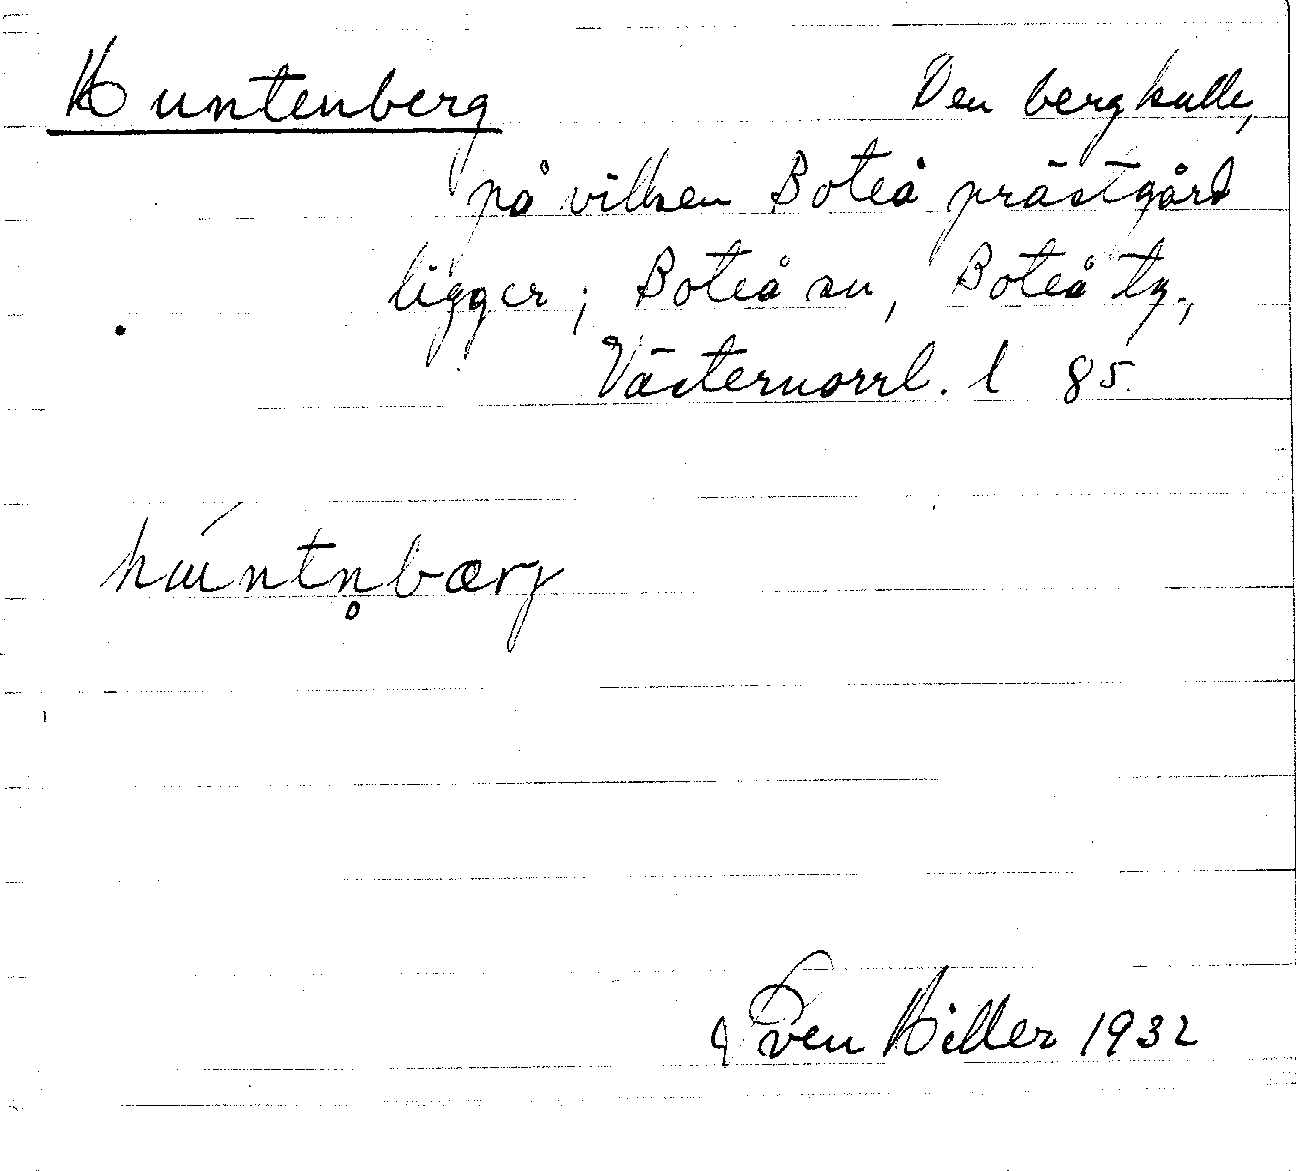 Huntenberg Den bergkulle,
på vilken Boteå prästgård
ligger; Boteå sn, Boteå tg.,
Västernorrl. l 85.
húntn̥bærj
Sven Hiller 1932